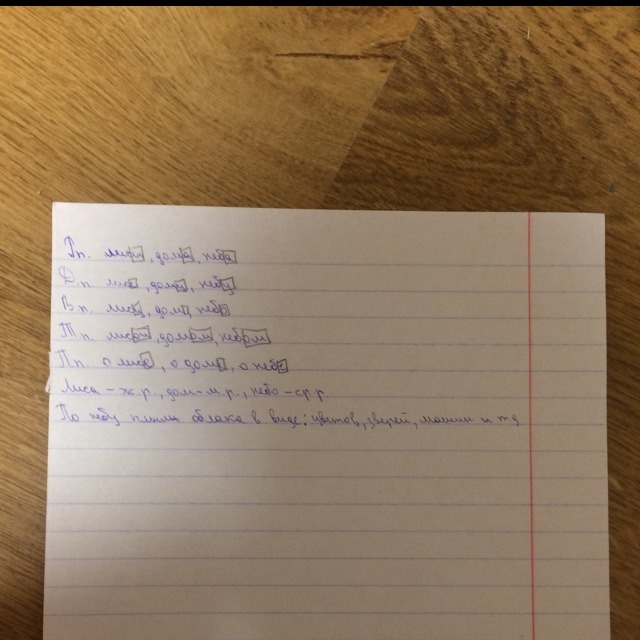 Рп. лисы, дома, неба
Дп. лисе, дому, небу
Вп. лису, дом, небо
Тп. лисой, домом, небом
Пп. о лисе, о доме, о небе
Лиса - ж.р., дом - м.р., небо - ср.р.
По небу плыли облака в виде: цветов, зверей, машин и тд